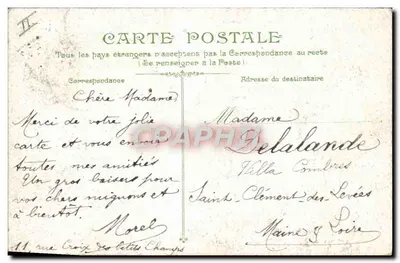 II
CARTE POSTALE
Tous les pays étrangers n'acceptent pas la Correspondance au recto
(Se renseigner à la Poste)
Correspondance
Adresse du destinataire
Chère Madame
Merci de votre jolie
carte et vous envoie
toutes mes amitiés
Un gros baisers pour
vos chers mignons et
à bientôt.
Morel
11, rue Croix des Petits Champs
Madame
Delalande
Villa
Saint-Clément-des-Levées
Maine & Loire